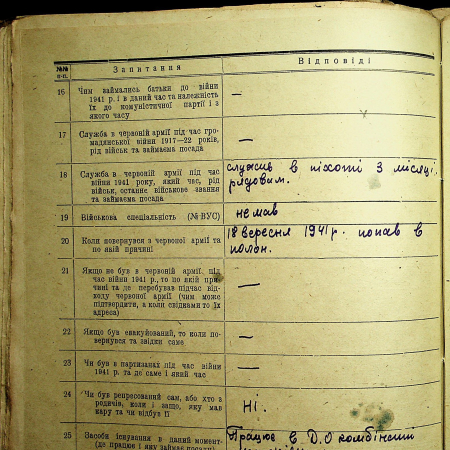 №№
п-п.
Запитання
Відповіді
16
Чим займались батьки до війни
1941 р. і в даний час та належність
їх до комуністичної партії і з
якого часу
—
17
Служба в червоній армії під час гро-
мадянської війни 1917—22 років,
рід військ та займаєма посада
—
18
Служба в червоній армії під час
війни 1941 року, який час, рід
військ, останнє військове звання
та займаєма посада
служив в піхоті 3 місяці
рядовим.
19
Військова спеціяльність (№ ВУС)
немав
20
Коли повернувся з червоної армії та
по якій причині
18 вересня 1941 р. попав в
полон.
21
Якщо не був в червоній армії під
час війни 1941 р., то по якій при-
чині та де перебував підчас від-
ходу червоної армії (чим може
підтвердити, а коли свідками то їх
адреса)
—
22
Якщо був евакуйований, то коли по-
вернувся та звідки саме
—
23
Чи був в партизанах під час війни
1941 р. та де саме і який час
—
24
Чи був репресований сам, або хто з
родичів, коли і защо, яку мав
кару та чи відбув її
Ні.
25
Засоби існування в даний момент
(де працює і яку займає посаду)
Працює в Д.О комбінаті